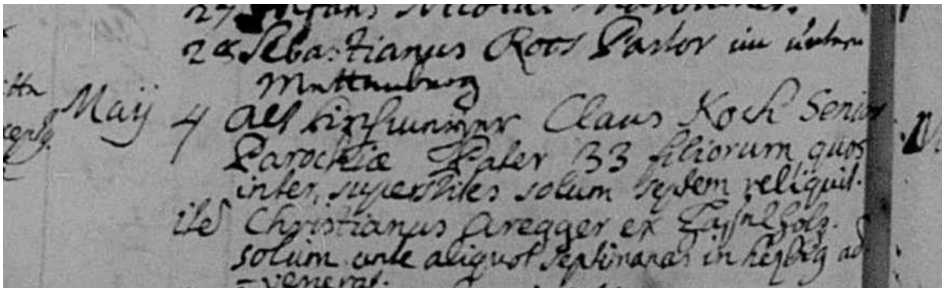 27 Infans Nicolai
28 Sebastianus Roos Pastor im untern
Muttenberg
Maij 4 alt Kirchmeyer Claus Koch Senior
Parochiæ Pater 33 filiorum, quos
inter, superstites solum septem reliquit.
Christianus Aregger ex
solum ante aliquot septimanas in herbrig ad
venerat.